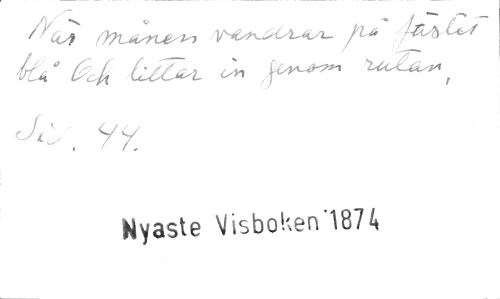 När månen vandrar på fästet
blå Och tittar in genom rutan,
Sid. 44.
Nyaste Visboken 1874